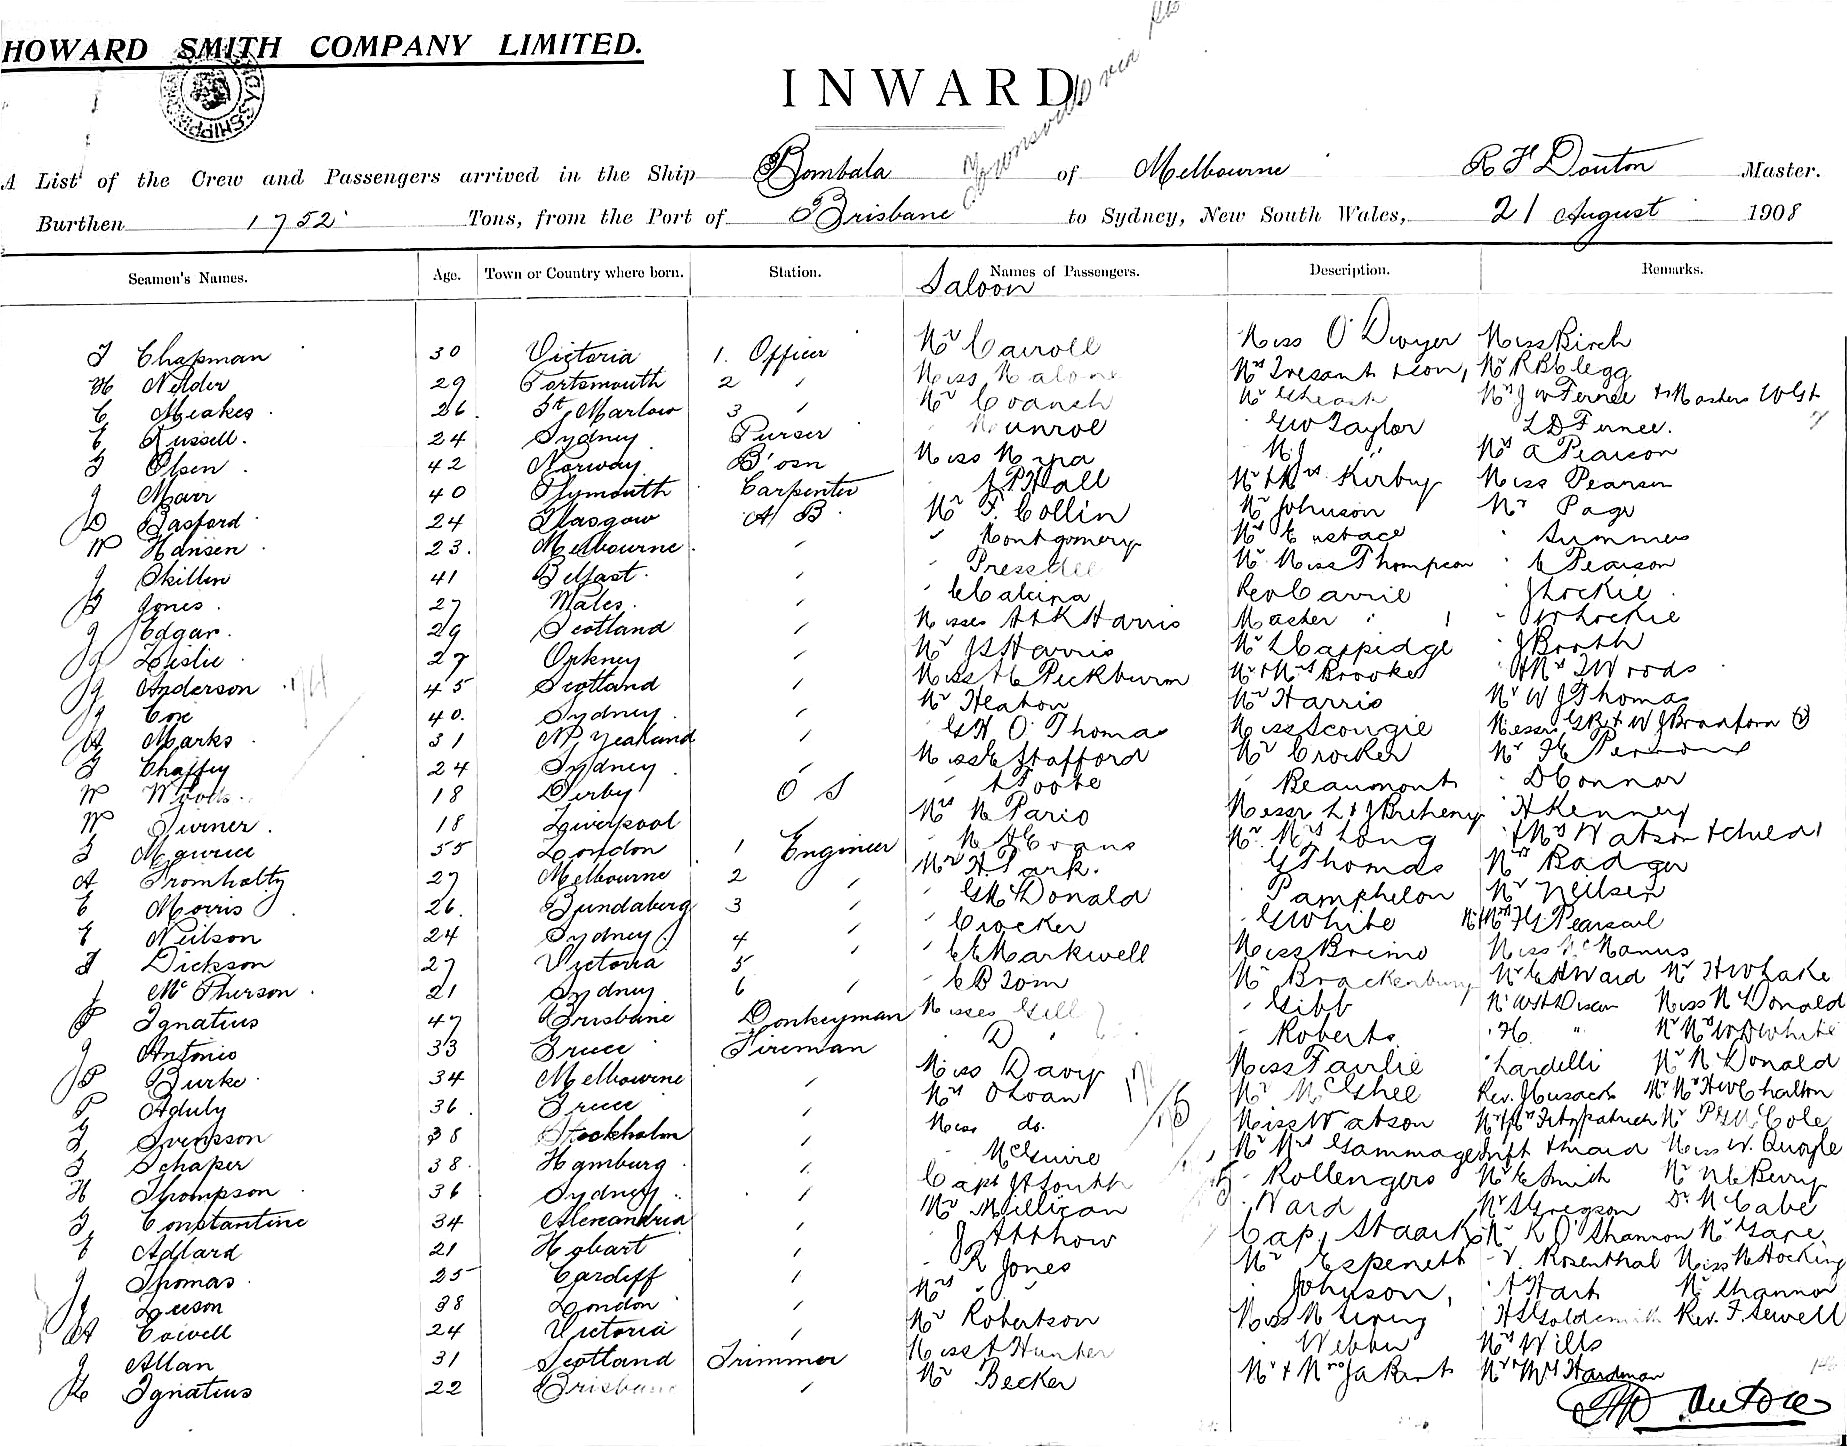 HOWARD SMITH COMPANY LIMITED.
INWARD.
Townsville via
A List of the Crew and Passengers arrived in the Ship Bombala of Melbourne R F Douton Master.
Burthen 1752 Tons, from the Port of Brisbane to Sydney, New South Wales, 21 August 1908
Seamen's Names. Age. Town or Country where born. Station. Names of Passengers. Description. Remarks.
Saloon
Chapman 30 Victoria 1. Officer Mr Carroll Miss O'Dwyer Miss Birch
Nelder 29 Portsmouth 2 " Miss Malone Mrs Tresant + son, Mr R B Clegg
C Meakes 26 Gt Marlow 3 " Mr Mr
E Russell 24 Sydney Purser Munroe G W Taylor L D Fernee.
Olsen 42 Norway B'osn Miss M. J " Mrs A Pearson
J Marr 40 Plymouth Carpenter Hall Mr & Mrs Kirby Miss Pearson
D Basford 24 Glasgow A B Mr F. Collin Mr Johnson Mr Page
W Hansen 23. Melbourne " " Montgomery Mr Eustace " Summers
J Skillen 41 Belfast " Pressdee Mr Miss Thompson " C Pearson
Jones 27 Wales " C Calcina Rev Carrie J Lockie
J Edgar 29 Scotland " Misses A & K Harris Master " " W Lockie
J Leslie 27 Orkney " Mr J S Harris Mr L Cappidge J Booth
J Anderson 45 Scotland " Miss H C Peckburn Mr & Mrs Brooke " & Mrs T Woods
J Coe 40. Sydney " Mr Heaton Mr Harris Mr W J Thomas
A Marks 31 N. Zealand " G H O'Thomas Miss Scougie Messrs
Chaffey 24 Sydney " Miss C Stafford Mr Crocker Mr H C
W Woods 18 Derby O S Foote " Beaumont " D Connor
W Turner 18 Liverpool Mrs M Paris Messrs L & J Breheny H Kenney
Maurice 55 London 1 Engineer M A Evans Mr. Mrs Long " & Mrs Watson & child
A Fromholtz 27 Melbourne 2 " Mr H Park. G Thomas Mrs Badger
E Morris 26. Bundaberg 3 " " G McDonald Pamphelon Mr Neilsen
E Neilson 24 Sydney 4 " " Crocker " G White Mr & Mrs H G Pearsail
Dickson 27 Victoria 5 " " C E Markwell Miss Breimo Miss McManus
J McPherson 21 Sydney 6 " " C B Tom Mr Brackenbury Mr C A Ward Mr H W Lake
P Ignatius 47 Brisbane Donkeyman Misses Gill " Gibb Miss McDonald
J Antonio 33 Greece Fireman D " " Roberts " H. " Mr Mrs W D White
P Burke 34 Melbourne " Miss Davy Miss Fairlie " Lardelli Mr McDonald
P Aduly 36. Greece " Mrs O'Loan Mr McGhee Rev. J Cusack Mr Mrs H W Chalton
Svensson 38 Stockholm " Miss do. Miss Watson Mr & Mrs Fitzpatrick Mr Cole
Schaper 38. Hamburg " McGuire Mr Mrs Gammage Inft & maid Miss W. Quayle
H Thompson 36 Sydney " Capt J A South " Rollengers Mr E Smith Mr N E Berry
G Constantine 34 Alexandria " Mr Millican " Ward Mr S Gregson Dr McCabe
E Adlard 21 Hobart " J Atthow Capt. Staark Mr K O'Shannon Mr Gare
J Thomas 25 Cardiff " " R Jones Mr Espenett " V. Rosenthal Miss M Hocking
J Leeson 38 London " Mrs " " Johnson, " Hart Mr Channon
A Cowell 24 Victoria " Mr Robertson Miss H S Goldsmith Rev. F. Sewell
J Allan 31 Scotland Trimmer Miss A Hunter Webber Mrs Wills
Ignatius 22 Brisbane " Mr Becker Mr & Mrs Mr & Mrs Hardman